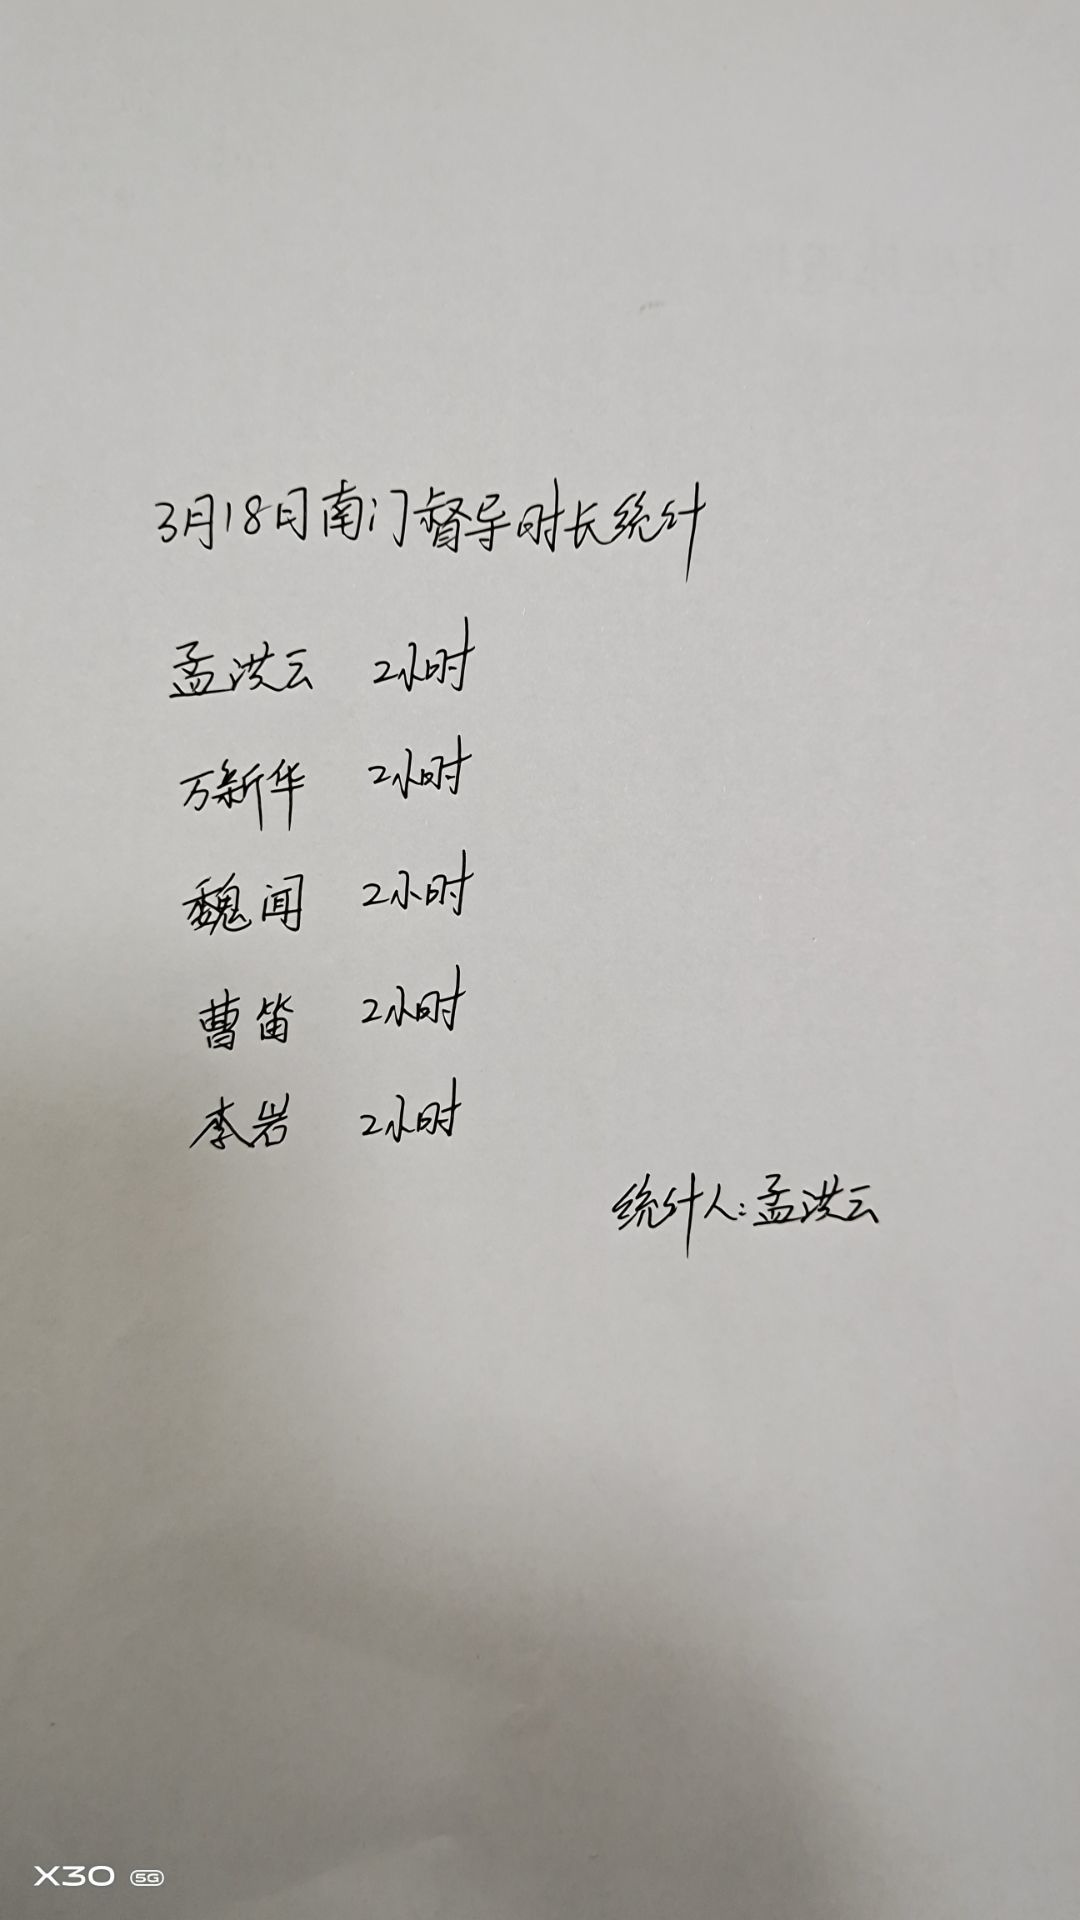 3月18日南门督导时长统计
孟洪云 2小时
万新华 2小时
魏闻 2小时
曹笛 2小时
李岩 2小时
统计人:孟洪云
X30 5G